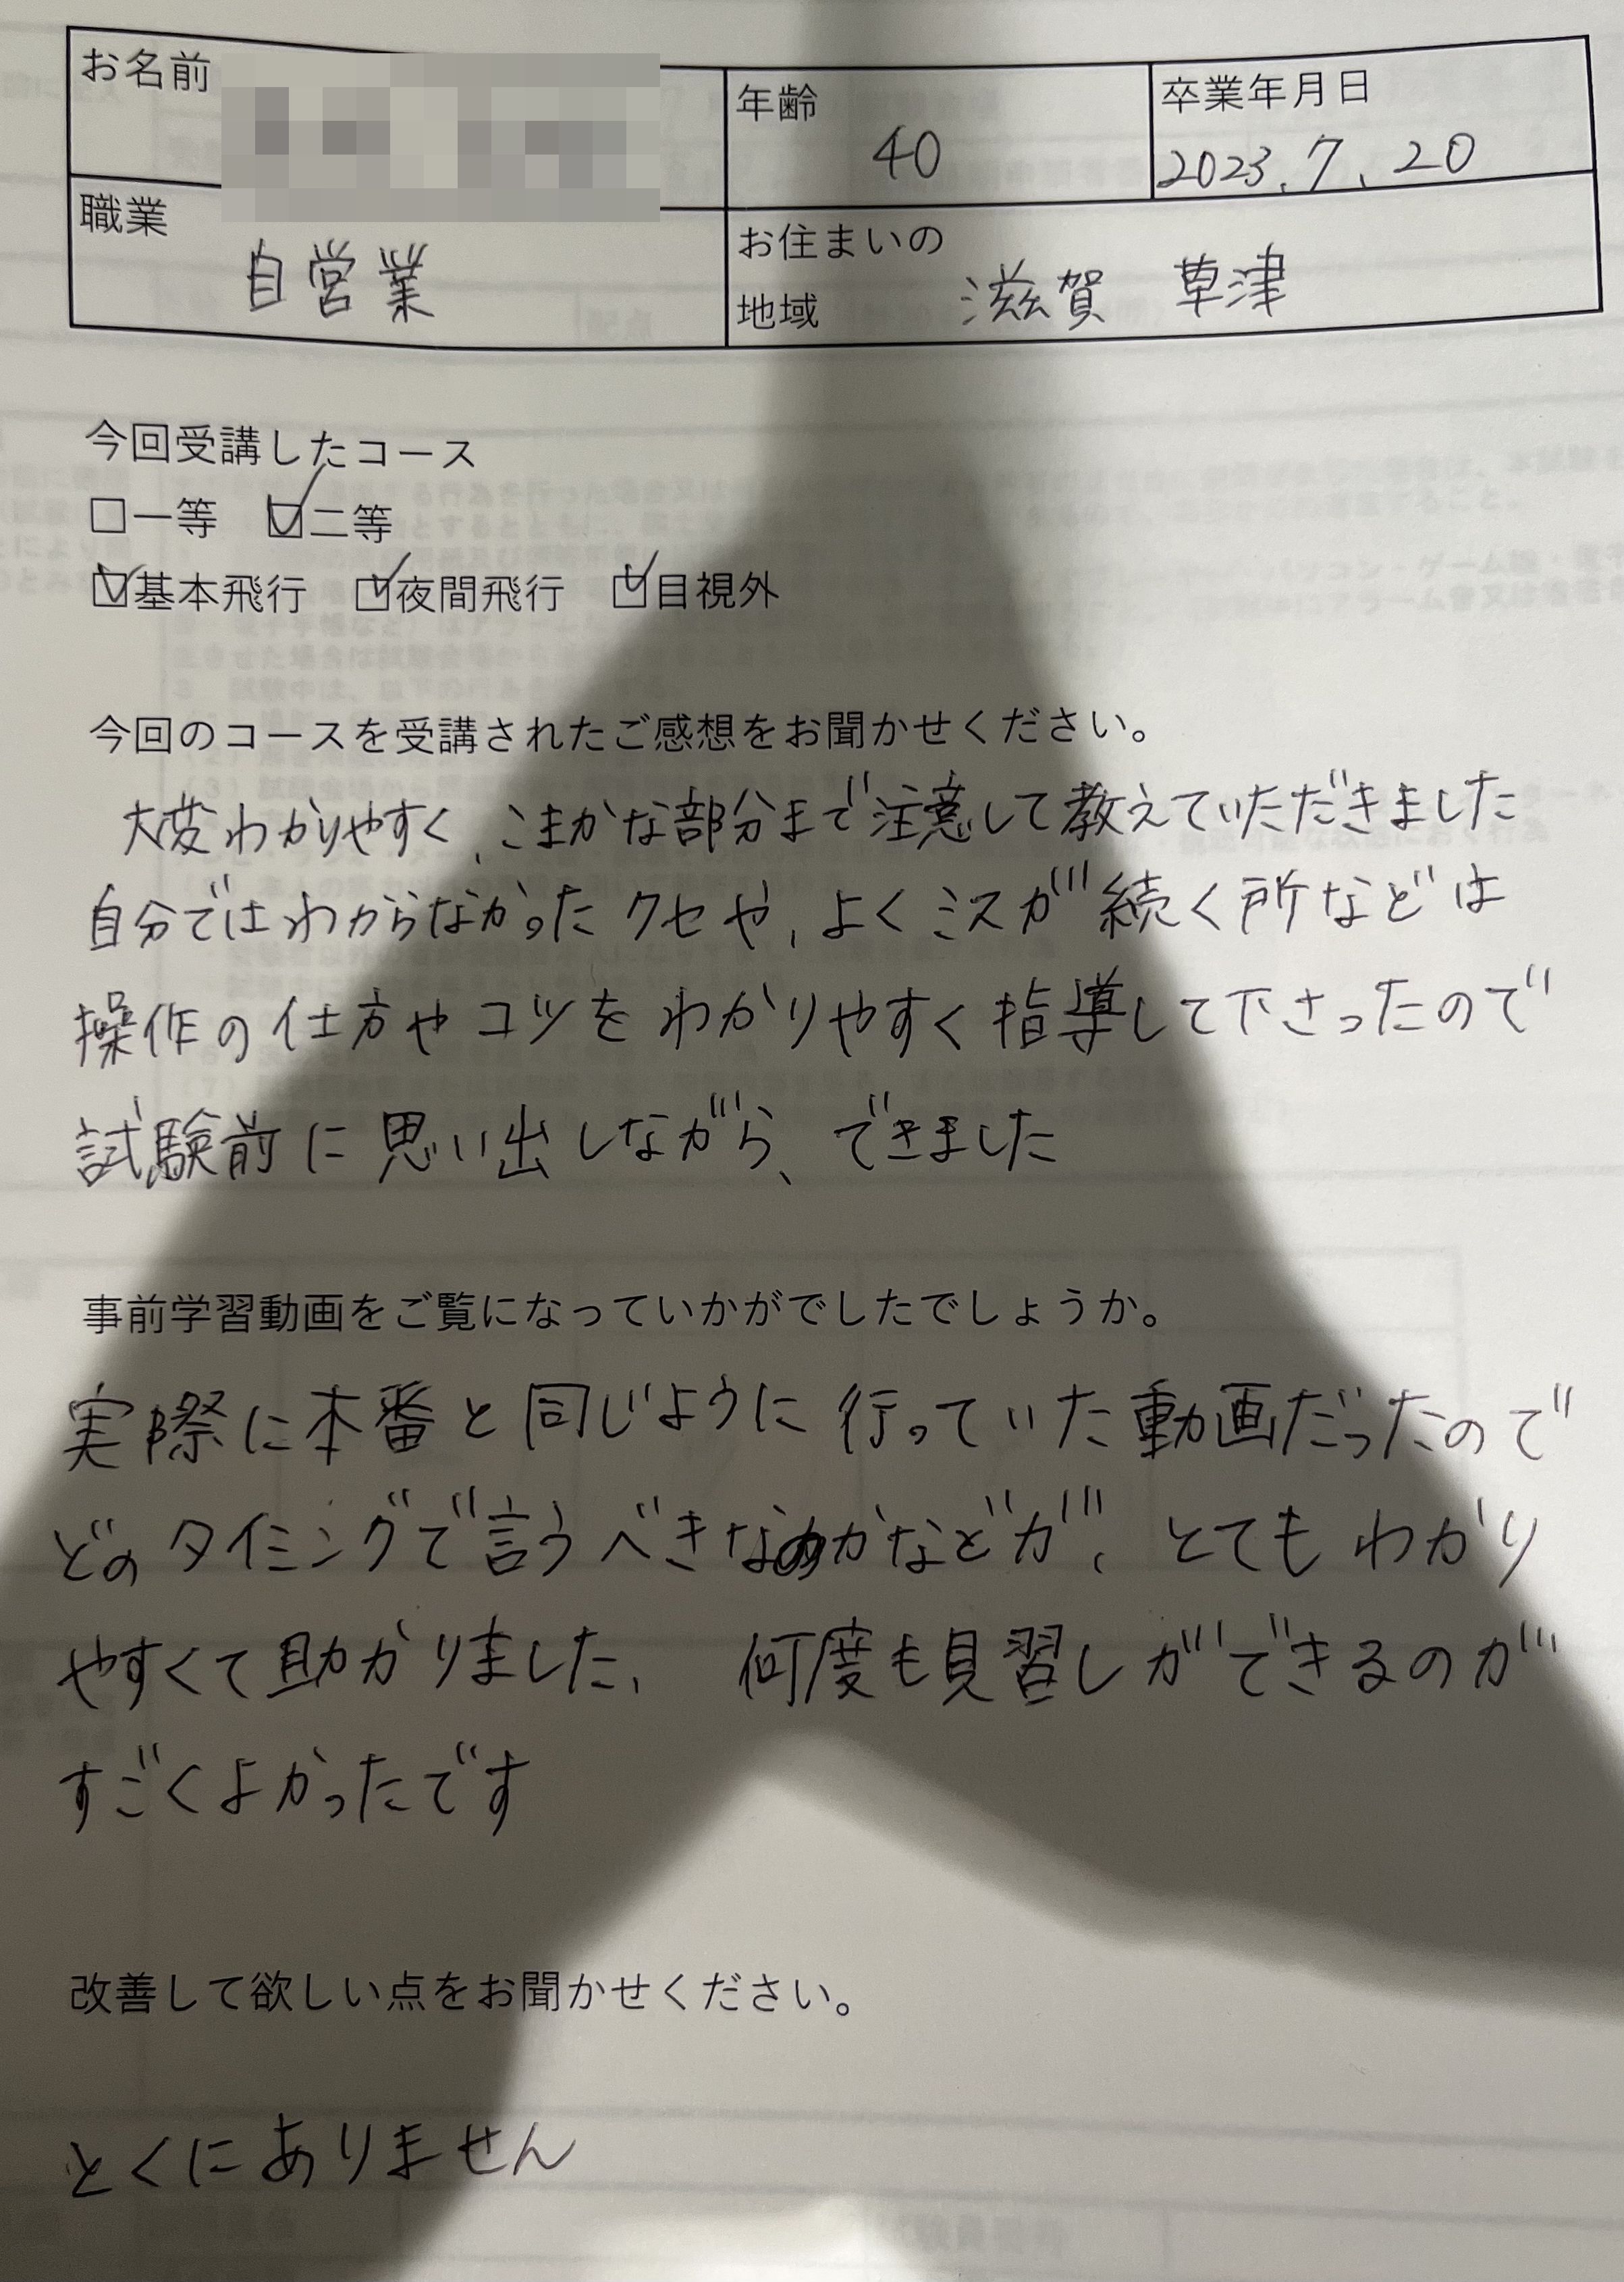 お名前
年齢
40
卒業年月日
2023.7.20
職業
自営業
お住まいの
地域
滋賀 草津
今回受講したコース
□一等 ☑二等
☑基本飛行 ☑夜間飛行 ☑目視外
今回のコースを受講されたご感想をお聞かせください。
大変わかりやすく、こまかな部分まで注意して教えていただきました
自分ではわからなかったクセや、よくミスが続く所などは
操作の仕方やコツをわかりやすく指導して下さったので
試験前に思い出しながら、できました
事前学習動画をご覧になっていかがでしたでしょうか。
実際に本番と同じように行っていた動画だったので
どのタイミングで言うべきなのかなどが、とてもわかり
やすくて助かりました、何度も見習しができるのが
すごくよかったです
改善して欲しい点をお聞かせください。
とくにありません